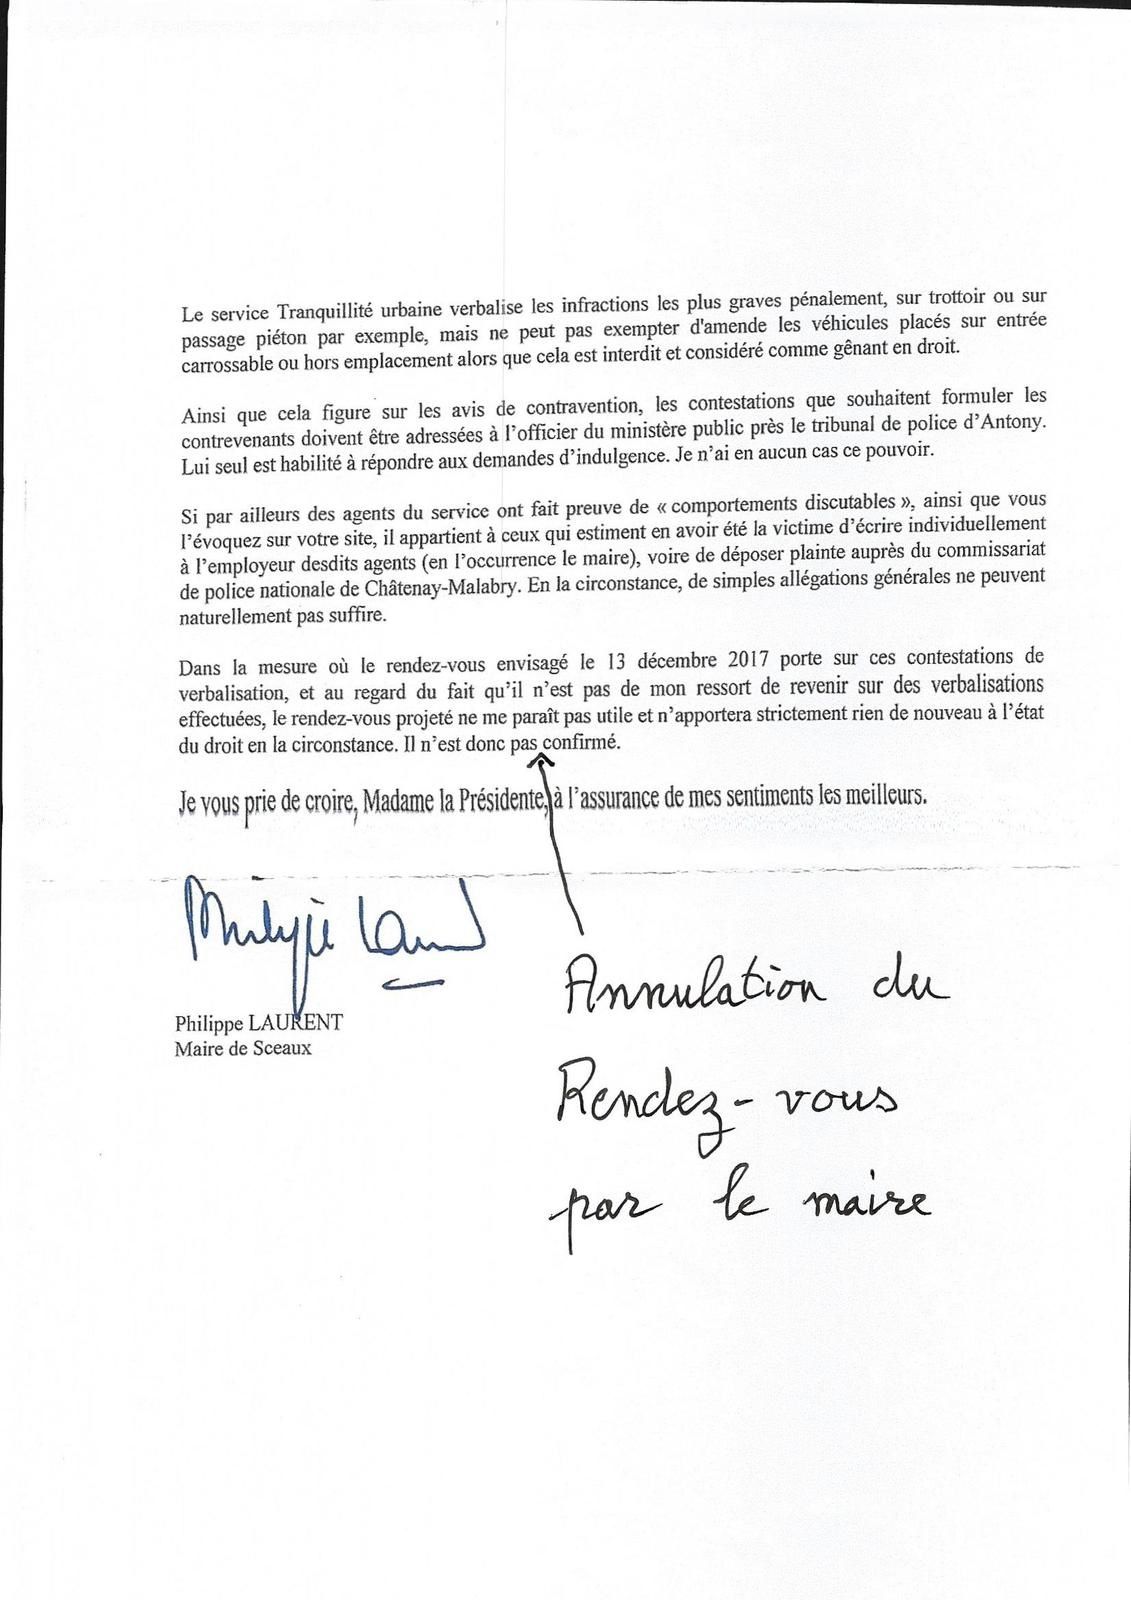 Le service Tranquillité urbaine verbalise les infractions les plus graves pénalement, sur trottoir ou sur
passage piéton par exemple, mais ne peut pas exempter d'amende les véhicules placés sur entrée
carrossable ou hors emplacement alors que cela est interdit et considéré comme gênant en droit.
Ainsi que cela figure sur les avis de contravention, les contestations que souhaitent formuler les
contrevenants doivent être adressées à l'officier du ministère public près le tribunal de police d'Antony.
Lui seul est habilité à répondre aux demandes d'indulgence. Je n'ai en aucun cas ce pouvoir.
Si par ailleurs des agents du service ont fait preuve de « comportements discutables », ainsi que vous
l'évoquez sur votre site, il appartient à ceux qui estiment en avoir été la victime d'écrire individuellement
à l'employeur desdits agents (en l'occurrence le maire), voire de déposer plainte auprès du commissariat
de police nationale de Châtenay-Malabry. En la circonstance, de simples allégations générales ne peuvent
naturellement pas suffire.
Dans la mesure où le rendez-vous envisagé le 13 décembre 2017 porte sur ces contestations de
verbalisation, et au regard du fait qu'il n'est pas de mon ressort de revenir sur des verbalisations
effectuées, le rendez-vous projeté ne me paraît pas utile et n'apportera strictement rien de nouveau à l'état
du droit en la circonstance. Il n'est donc pas confirmé.
Je vous prie de croire, Madame la Présidente, à l'assurance de mes sentiments les meilleurs.
Philippe Laurent
Philippe LAURENT
Maire de Sceaux
Annulation du
Rendez-vous
par le maire